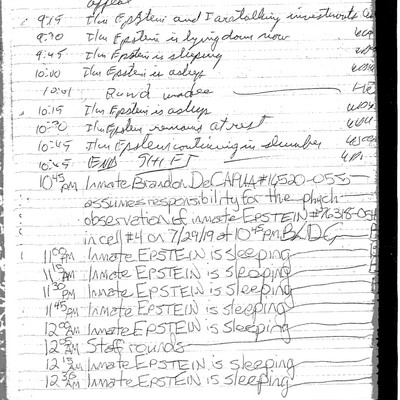 appeal
9:15 I/m Epstein and I are talking investments
9:30 I/m Epstein is lying down now
9:45 I/m Epstein is sleeping
10:00 I/m Epstein is asleep
10:01 Round made
10:15 I/m Epstein is asleep
10:30 I/m Epstein remains at rest
10:45 I/m Epstein continuing in slumber
10:45 END SHIFT
10:45 PM Inmate Brandon DeCAPUA #16520-055
assumes responsibility for the psych
observation of inmate EPSTEIN #76318-054
in cell #4 on 7/29/19 at 10:45 PM. BCDC
11:00 PM Inmate EPSTEIN is sleeping
11:15 PM Inmate EPSTEIN is sleeping
11:30 PM Inmate EPSTEIN is sleeping
11:45 PM Inmate EPSTEIN is sleeping
12:00 AM Inmate EPSTEIN is sleeping
AM Staff rounds
12:15 AM Inmate EPSTEIN is sleeping
12:30 AM Inmate EPSTEIN is sleeping